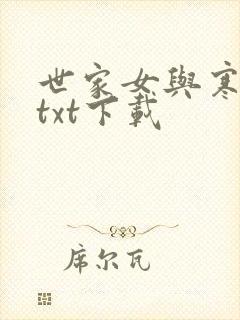 世家女與寒
txt下載
席尔瓦